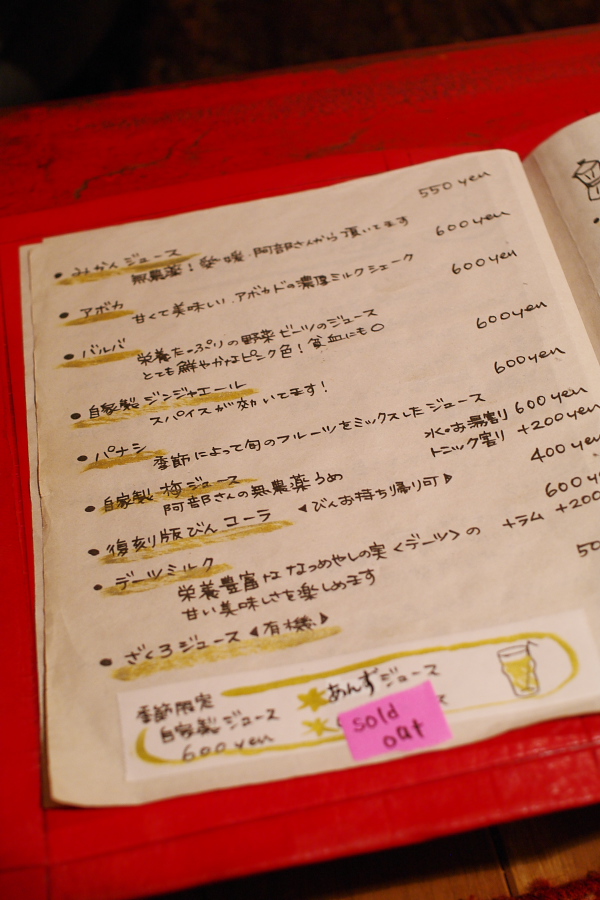 550 yen
• みかんジュース
無農薬！愛媛・阿部さんから頂いてます
600 yen
• アボカ
甘くて美味しい、アボカドの濃厚ミルクシェーク
600 yen
• バルバ
栄養たっぷりの野菜ビーツのジュース
とても鮮やかなピンク色！貧血にも○
600 yen
• 自家製ジンジャエール
スパイスが効いてます！
600 yen
• パナシェ
季節によって旬のフルーツをミックスしたジュース
• 自家製 梅ジュース
水・お湯割り 600 yen
阿部さんの無農薬うめ
トニック割り +200 yen
• 復刻版びんコーラ ◁びんお持ち帰り可▷
400 yen
• デーツミルク
600
栄養豊富な なつめやしの実〈デーツ〉の
+ラム +200
甘い美味しさを楽しめます
• ざくろジュース ◁有機▷
季節限定
自家製ジュース
600 yen
★あんずジュース
★
sold
out